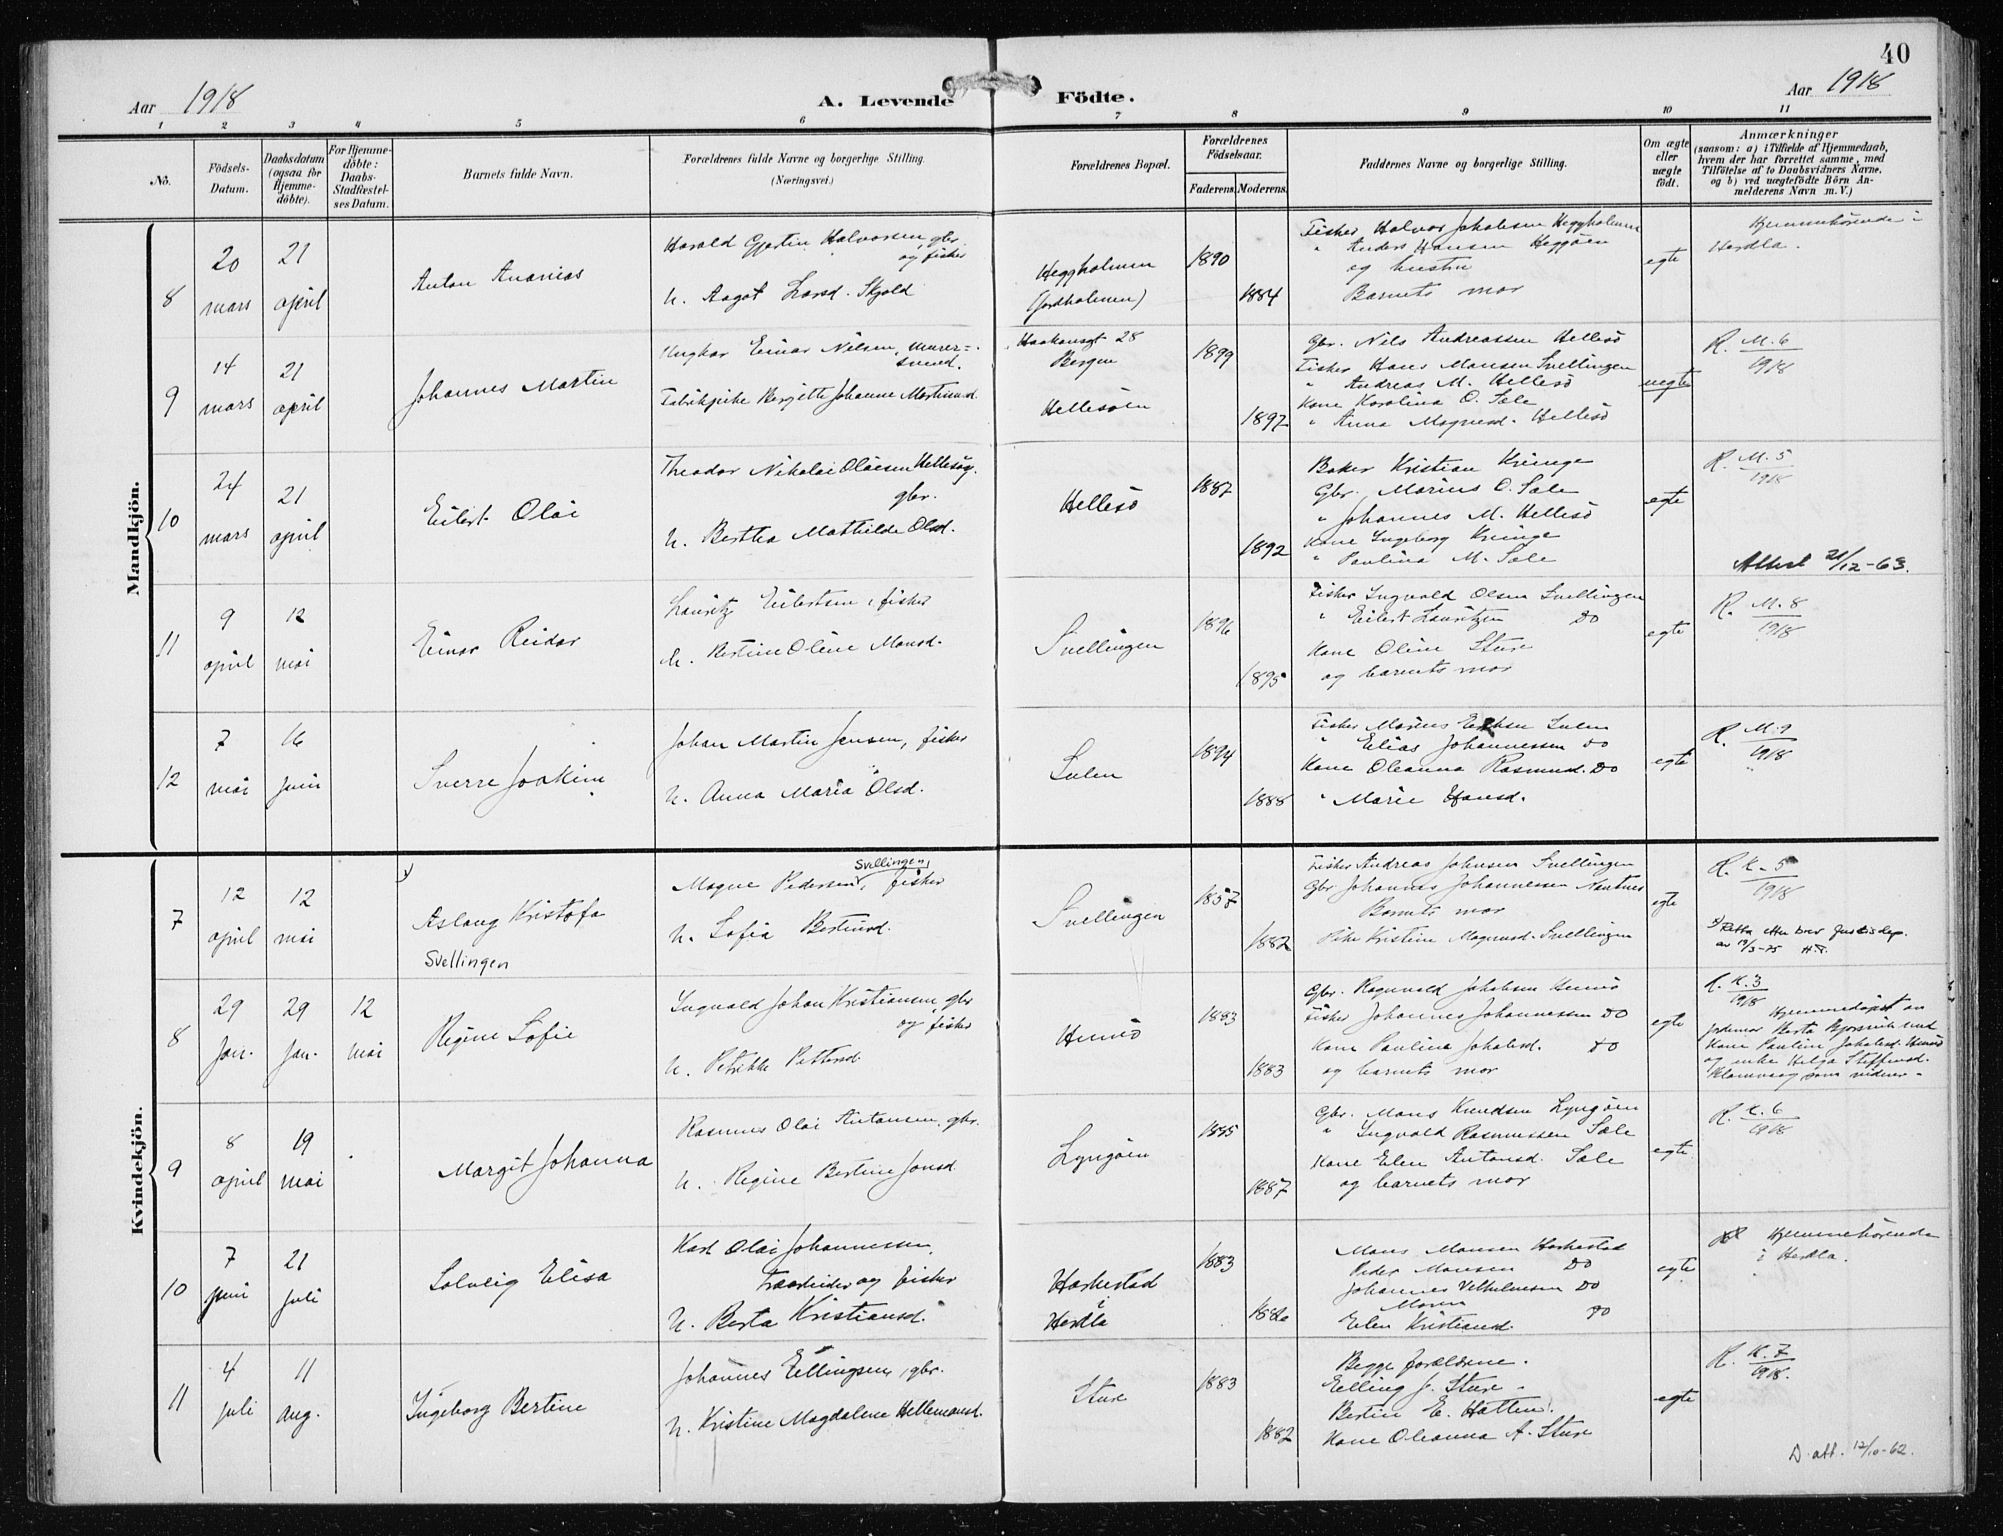 40
Aar 1918
A. Levende Födte.
Aar 1918
1 2 3 4 5 6 7 8 9 10 11
No.
Födsels-
Datum.
Daabsdatum
(ogsaa för
Hjemme-
döbte).
For Hjemme-
döbte:
Daabs-
Stadfæstel-
ses Datum.
Barnets fulde Navn.
Forældrenes fulde Navne og borgerlige Stilling.
(Næringsvei.)
Forældrenes Bopæl.
Forældrenes
Födselsaar.
Faderens. Moderens.
Faddernes Navne og borgerlige Stilling.
Om ægte
eller
uægte
födt.
Anmærkninger
(saasom: a) i Tilfælde af Hjemmedaab,
hvem der har forrettet samme, med
Tilföielse af to Daabsvidners Navne,
og b) ved uægtefödte Börn An-
melderens Navn m. V.)
Mandkjön.
8
20
mars
21
april
Anton Ananias
Harald Gjertin Halvorsen, gbr.
og fisker
h. Aagot Larsd. Skjold
Heggholmen
(Jordholmen)
1890
1884
Fisker Halvor Johansen Heggholmen
" Anders Hansen Heggöen
og hustru
Barnets mor
egte
Hjemmehörende i
Herdla.
9
14
mars
21
april
Johannes Martin
Ungkar Einar Nilsen, murer-
svend.
Fabrikpike Bergitte Johanne Martinusd.
Haakonsgt 28
Bergen
Hellesöen
1899
1897
Gbr. Nils Andreassen Hellesö
Fisker Hans Monsen Svellingen
" Andreas M. Hellesö
Kone Karolina O. Sæle
" Anna Magnesd. Hellesö
uegte
R. M. 6
1918
10
24
mars
21
april
Eilert Olai
Theodor Nikolai Olaisen Hellesöy.
gbr.
h. Bertha Mathilde Olsd.
Hellesö
1887
1892
Baker Kristian Kringe
Gbr. Marius O. Sæle
" Johannes M. Hellesö
Kone Ingeborg Kringe
" Paulina M. Sæle
egte
R. M. 5
1918
Attest 21/12-63.
11
9
april
12
mai
Einar Reidar
Lauritz Eilertsen, fisker
h. Bertine Oline Monsd.
Svellingen
1896
1895
Fisker Ingvald Olsen Svellingen
" Eilert Lauritzen Do
Kone Oline Sture
og barnets mor
egte
R. M. 8
1918
12
7
mai
16
juni
Sverre Joakim
Johan Martin Jensen, fisker
h. Anna Maria Olsd.
Sulen
1894
1888
Fisker Marius Sulen
" Elias Johannessen Do
Kone Oleanna Rasmusd. Do
" Marie Hansd.
egte
R. M. 9
1918
Kvindekjön.
7
12
april
12
mai
Aslaug Kristofa
Svellingen
Svellingen,
Magne Pedersen, fisker
h. Sofia Bertinsd.
Svellingen
1857
1882
Fisker Andreas Johnsen Svellingen
Gbr Johannes Johannessen
Barnets mor
Pike Kristine Magnusd. Svellingen
egte
R. K. 5
1918
Retta etter brev Justisdep.
av 19/3-75 H.T.
8
29
Jan.
29
Jan.
12
mai
Regine Sofie
Ingvald Johan Kristiansen, gbr
og fisker
h. Petrikke Pettersd.
Hernö
1883
1883
Gbr. Ragnvald Jakobsen Hernö
Fisker Johannes Johannessen Do
Kone Paulina Jakobsd. Do
og barnets mor
egte
R. K. 3
1918
Hjemmedöpt av
jordmor Berta med
Kone Pauline Jakobsd. Hernö
og enke Helga Steffensd.
som vidner.
9
8
april
19
mai
Margit Johanna
Rasmus Olai Antonsen, gbr.
h. Regine Bertine Jonsd.
Lyngöen
1885
1887
Gbr. Mons Knudsen Lyngöen
" Ingvald Rasmussen Sæle
Kone Elen Antonsd. Sæle
og barnets mor
egte.
R. K. 6
1918
10
7
juni
21
juli
Solveig Elisa
Karl Olai Johannessen,
og fisker
h. Berta Kristiansd.
Harkestad
i
Herdla
1883
1886
Mons Monsen Harkestad
Peder Monsen Do
Johannes Vilhelmsen Do
Moren
Elen Kristiansd. Do
egte
Hjemmehörende
i Herdla.
11
4
juli
11
aug.
Ingeborg Bertine
Johannes Ellingsen, gbr.
h. Kristine Magdalene Hellemansd.
Sture
1883
1882
Begge forældrene.
Elling J. Sture
Bertin E. Hatten.
Kone Oleanna A. Sture
egte
R. K. 7
1918.
D. att. 12/10-62.